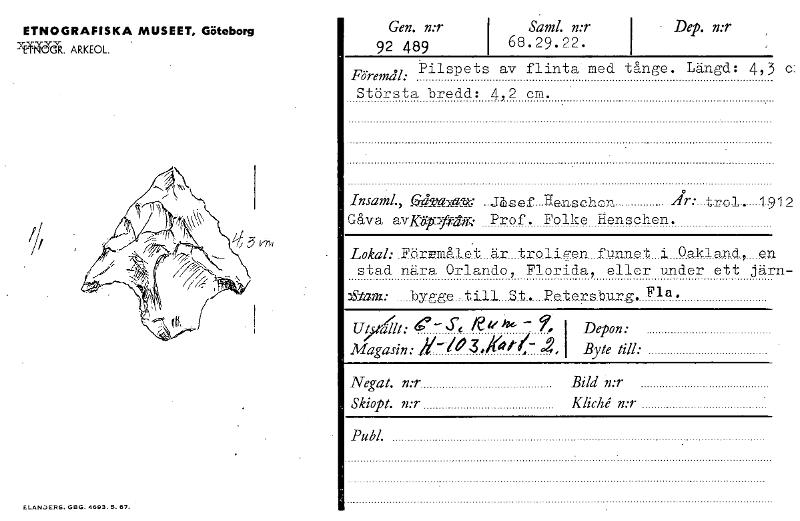 ETNOGRAFISKA MUSEET, Göteborg
ETNOGR. ARKEOL.
1/1
4,3 cm
ELANDERS, GBG. 4693. 5. 67.
Gen. n:r
92 489
Saml. n:r
68.29.22.
Dep. n:r
Föremål: Pilspets av flinta med tånge. Längd: 4,3 c
Största bredd: 4,2 cm.
Insaml., Gåva av: Josef Henschen År: trol. 1912
Gåva av Köp från: Prof. Folke Henschen.
Lokal: Föremålet är troligen funnet i Oakland, en
stad nära Orlando, Florida, eller under ett järn-
Stam: bygge till St. Petersburg. Fla.
Utställt: C-S. Rum-9. Depon:
Magasin: H-103. Kart.-2. Byte till:
Negat. n:r Bild n:r
Skiopt. n:r Kliché n:r
Publ.